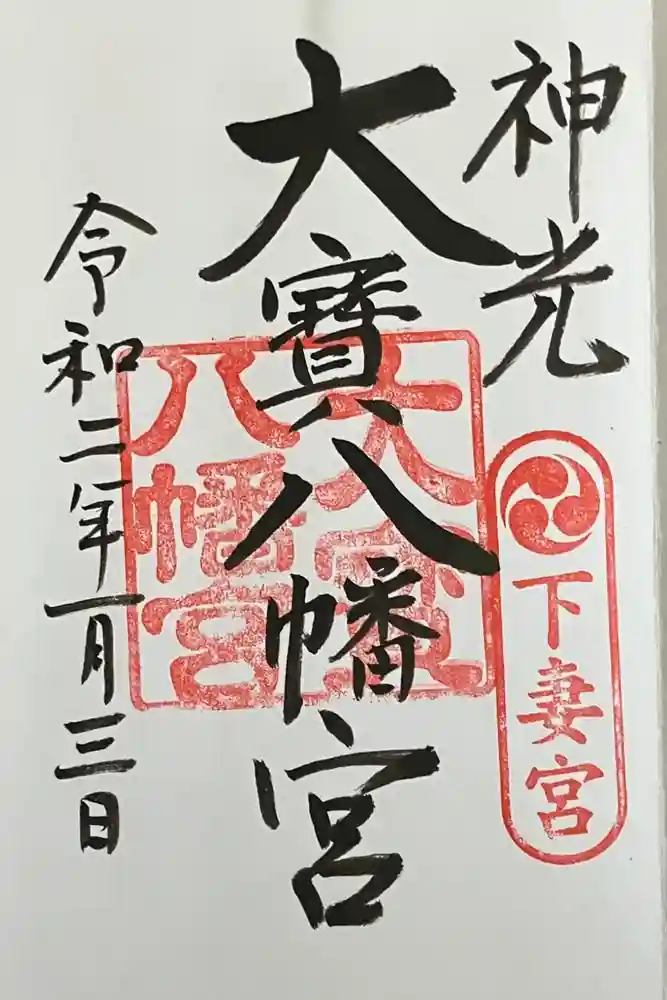 神光
下妻宮
大寶八幡宮
大宝
八幡宮
令和二年一月三日